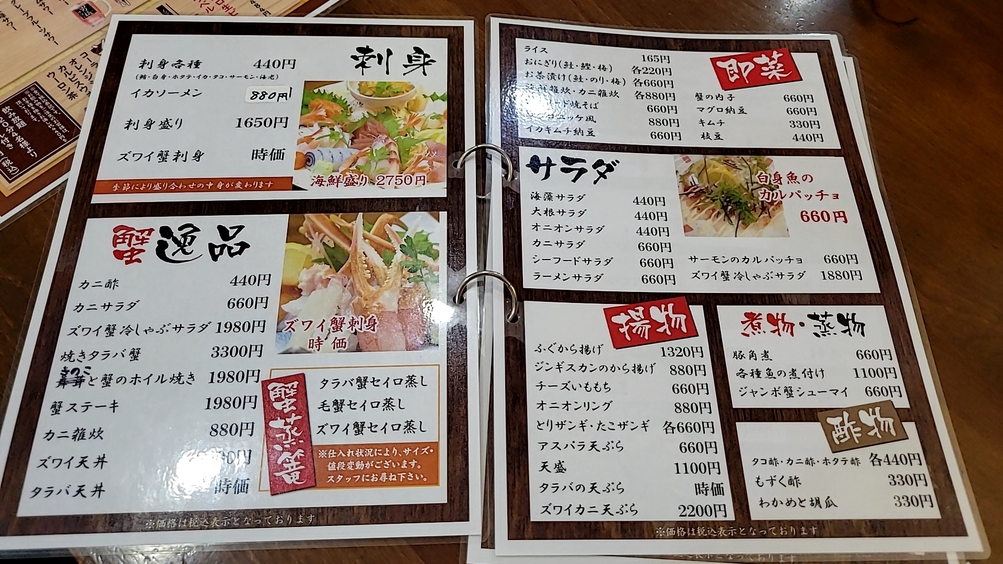 刺身
刺身各種 440円
(鮪・白身・ホタテ・イカ・タコ・サーモン・海老)
イカソーメン 880円
刺身盛り 1650円
ズワイ蟹刺身 時価
海鮮盛り 2750円
季節により盛り合わせの中身が変わります
蟹逸品
カニ酢 440円
カニサラダ 660円
ズワイ蟹冷しゃぶサラダ 1980円
焼きタラバ蟹 3300円
きのこと蟹のホイル焼き 1980円
蟹ステーキ 1980円
カニ雑炊 880円
ズワイ天丼
タラバ天丼 時価
ズワイ蟹刺身
時価
蟹蒸篭
タラバ蟹セイロ蒸し
毛蟹セイロ蒸し
ズワイ蟹セイロ蒸し
※仕入れ状況により、サイズ・
値段変動がございます。
スタッフにお尋ね下さい。
※価格は税込表示となっております
即菜
ライス 165円
おにぎり(鮭・鰹・梅) 各220円
お茶漬け(鮭・のり・梅) 各660円
雑炊・カニ雑炊 各880円
ド焼そば 660円
ロッケ風 880円
イカキムチ納豆 660円
蟹の内子 660円
マグロ納豆 660円
キムチ 330円
枝豆 440円
サラダ
海藻サラダ 440円
大根サラダ 440円
オニオンサラダ 440円
カニサラダ 660円
シーフードサラダ 660円
ラーメンサラダ 660円
白身魚の
カルパッチョ
660円
サーモンのカルパッチョ 660円
ズワイ蟹冷しゃぶサラダ 1880円
揚物
ふぐから揚げ 1320円
ジンギスカンのから揚げ 880円
チーズいももち 660円
オニオンリング 880円
とりザンギ・たこザンギ 各660円
アスパラ天ぷら 660円
天盛 1100円
タラバの天ぷら 時価
ズワイカニ天ぷら 2200円
煮物・蒸物
豚角煮 660円
各種魚の煮付け 1100円
ジャンボ蟹シューマイ 660円
酢物
タコ酢・カニ酢・ホタテ酢 各440円
もずく酢 330円
わかめと胡瓜 330円
※価格は税込表示となっております